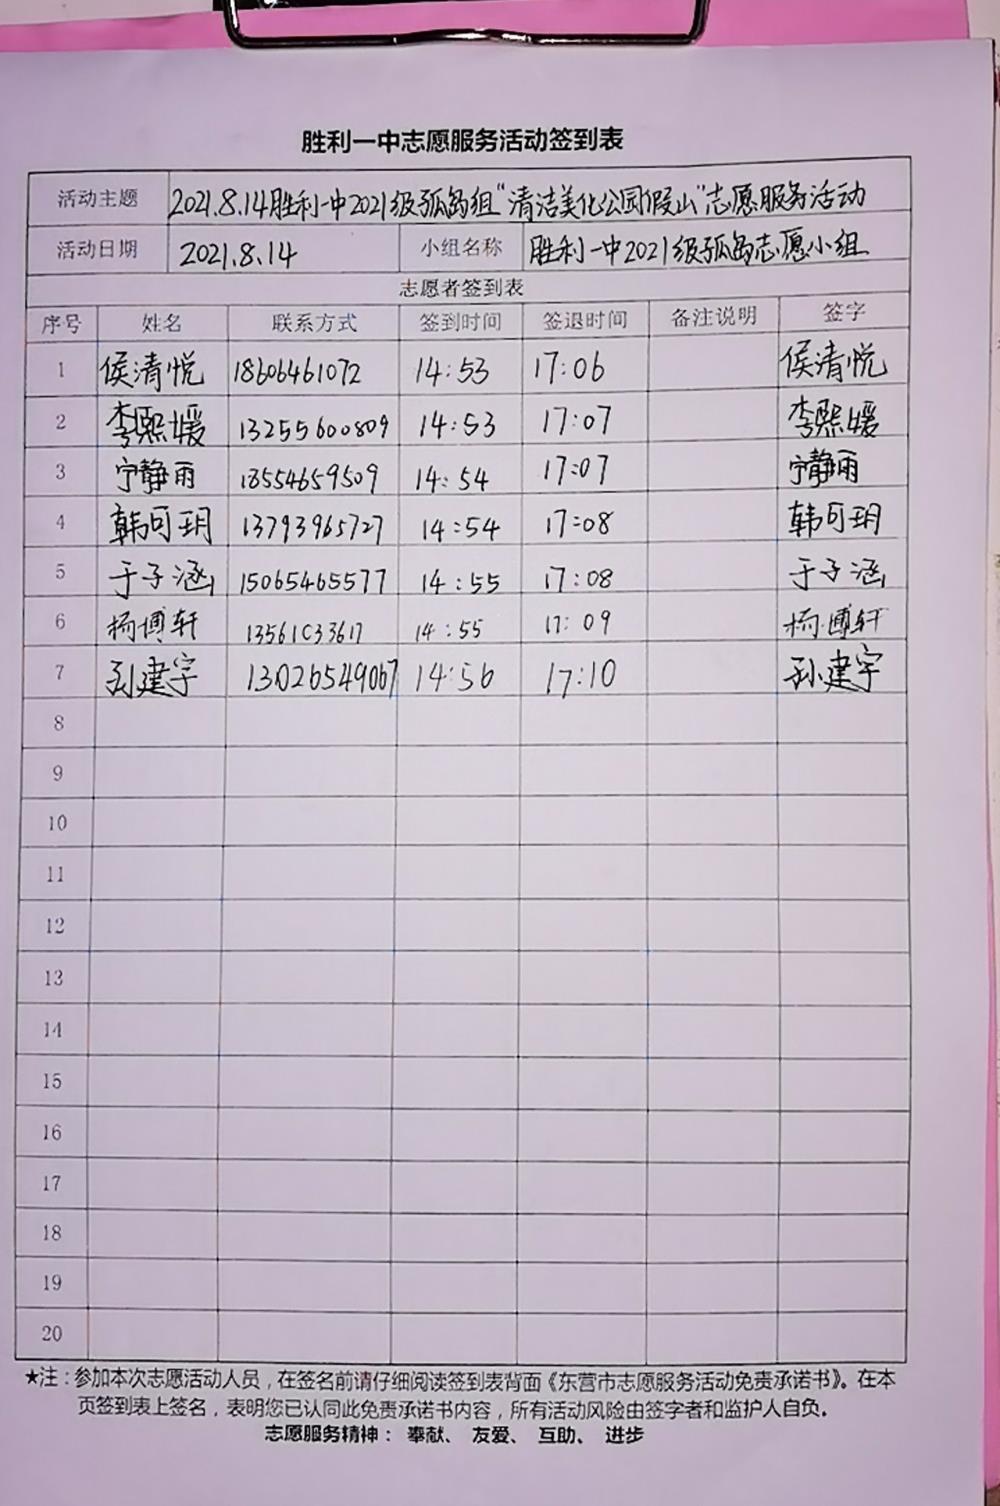 胜利一中志愿服务活动签到表
活动主题 2021.8.14胜利一中2021级孤岛组“清洁美化公园假山”志愿服务活动
活动日期 2021.8.14 小组名称 胜利一中2021级孤岛志愿小组
志愿者签到表
序号 姓名 联系方式 签到时间 签退时间 备注说明 签字
1 侯清悦 18606461072 14:53 17:06 侯清悦
2 李熙媛 13255600809 14:53 17:07 李熙媛
3 宁静雨 18554659509 14:54 17:07 宁静雨
4 韩可玥 13793965727 14:54 17:08 韩可玥
5 于子涵 15065465577 14:55 17:08 于子涵
6 杨博轩 13561033617 14:55 17:09 杨博轩
7 孙建宇 13026549067 14:56 17:10 孙建宇
8
9
10
11
12
13
14
15
16
17
18
19
20
★注：参加本次志愿活动人员，在签名前请仔细阅读签到表背面《东营市志愿服务活动免责承诺书》。在本
页签到表上签名，表明您已认同此免责承诺书内容，所有活动风险由签字者和监护人自负。
志愿服务精神： 奉献、 友爱、 互助、 进步